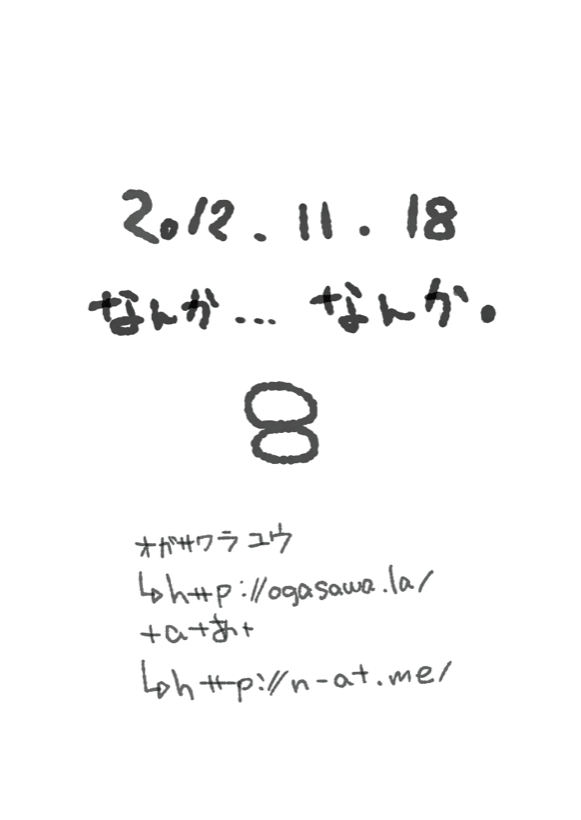 2012.11.18
なんか... なんか.
8
オガサワラ ユウ
↳http://ogasawa.la/
+a+あ+
↳http://n-at.me/